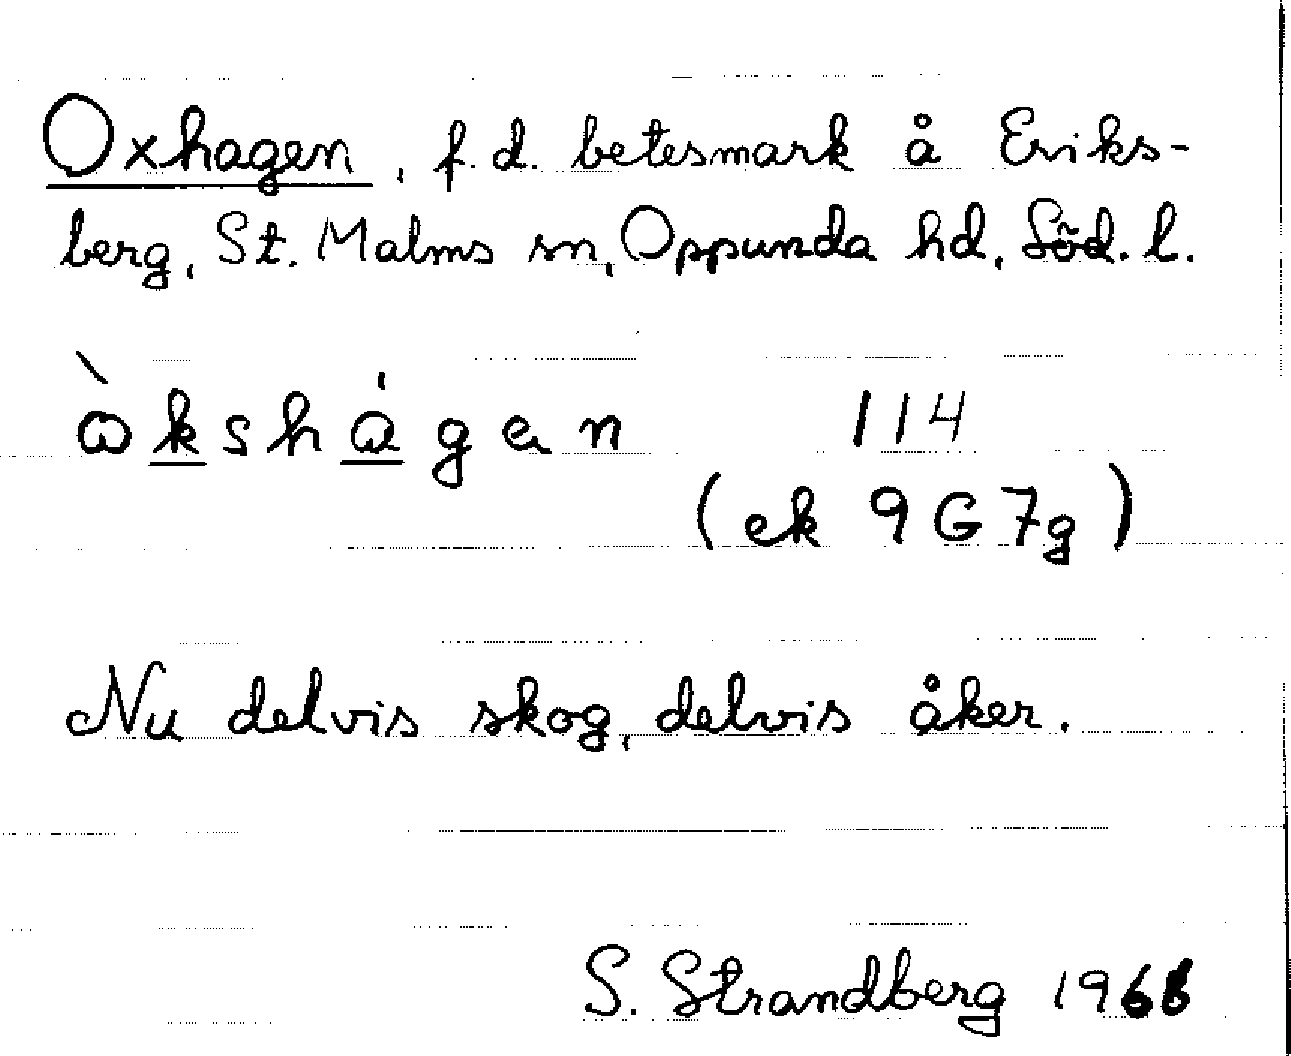 Oxhagen, f.d. betesmark å Eriks-
berg, St. Malms sn, Oppunda hd, Söd. l.
ὼkshágen 114
(ek 9G7g)
Nu delvis skog, delvis åker.
S. Strandberg 1966